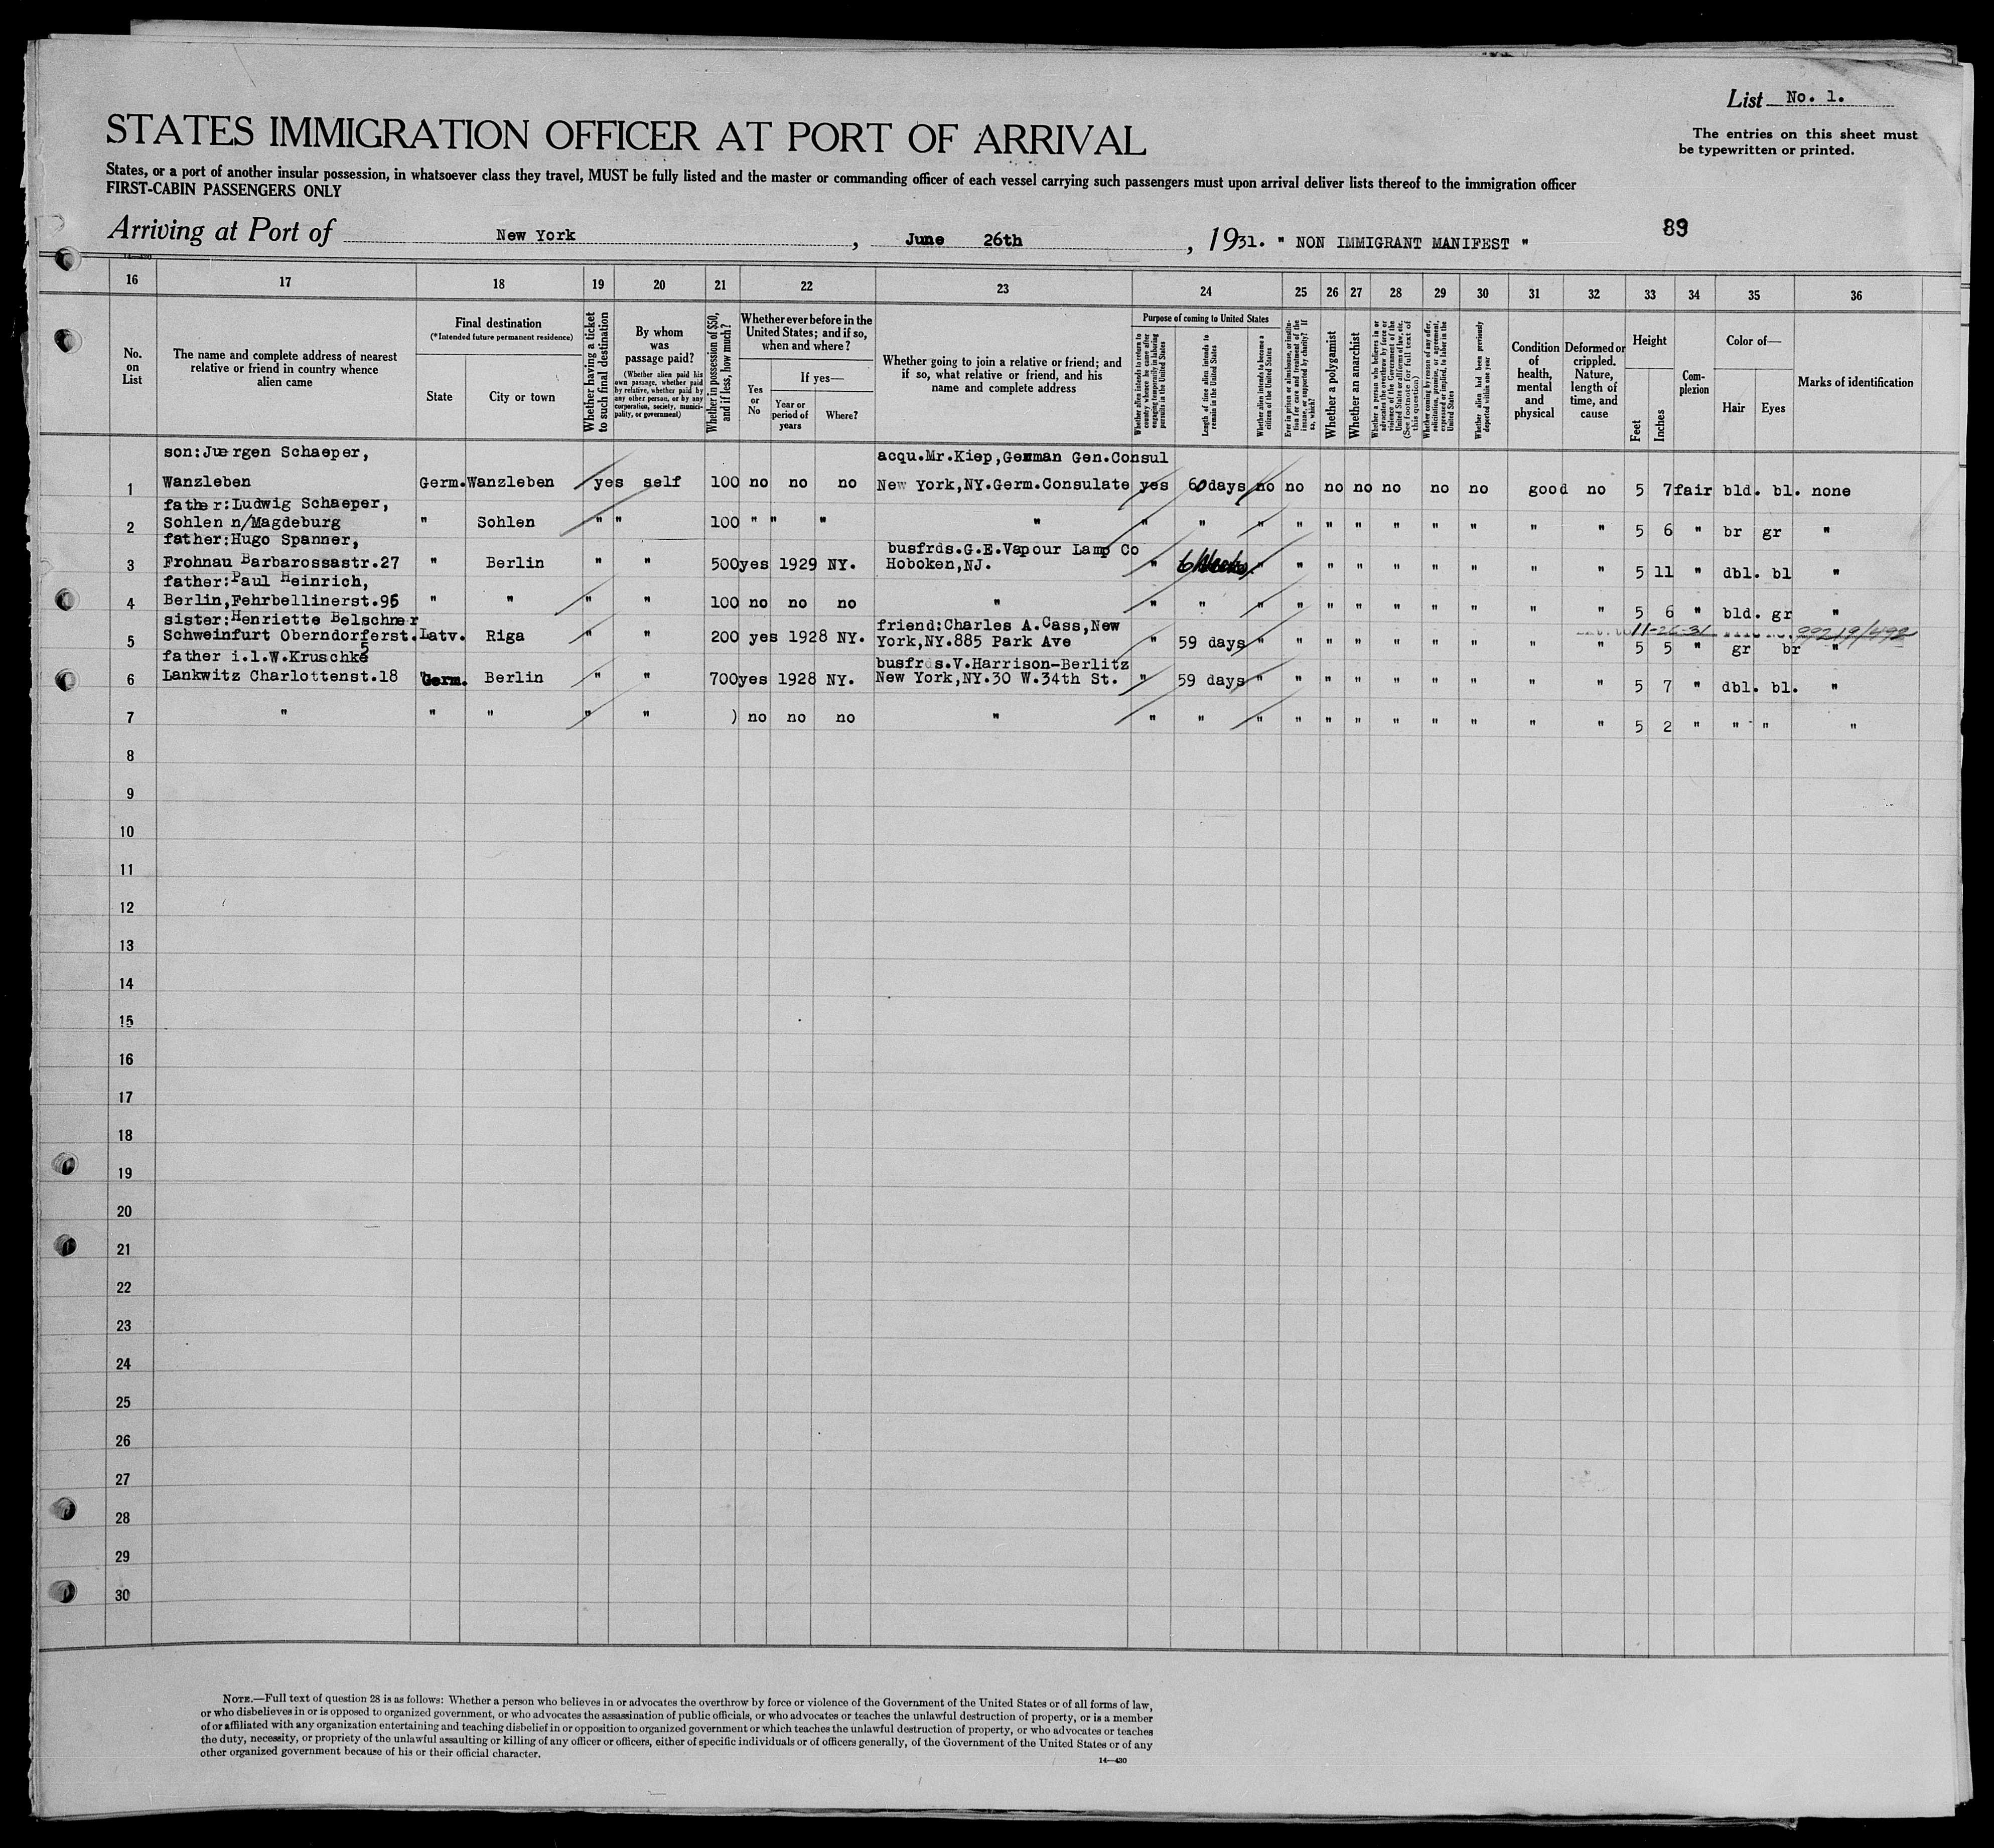 List No. 1.
STATES IMMIGRATION OFFICER AT PORT OF ARRIVAL
The entries on this sheet must
be typewritten or printed.
States, or a port of another insular possession, in whatsoever class they travel, MUST be fully listed and the master or commanding officer of each vessel carrying such passengers must upon arrival deliver lists thereof to the immigration officer
FIRST-CABIN PASSENGERS ONLY
Arriving at Port of New York, June 26th, 1931. " NON IMMIGRANT MANIFEST " 89
16 17 18 19 20 21 22 23 24 25 26 27 28 29 30 31 32 33 34 35 36
No. on List
The name and complete address of nearest relative or friend in country whence alien came
Final destination
(*Intended future permanent residence)
State
City or town
Whether having a ticket to such final destination
By whom was passage paid?
(Whether alien paid his own passage, whether paid by relative, whether paid by any other person, or by any corporation, society, municipality, or government)
Whether in possession of $50, and if less, how much?
Whether ever before in the United States; and if so, when and where?
Yes or No
If yes—
Year or period of years
Where?
Whether going to join a relative or friend; and if so, what relative or friend, and his name and complete address
Purpose of coming to United States
Whether alien intends to return to country whence he came after engaging temporarily in laboring pursuits in the United States
Length of time alien intends to remain in the United States
Whether alien intends to become a citizen of the United States
Ever in prison or almshouse, or institution for care and treatment of the insane, or supported by charity? If so, which?
Whether a polygamist
Whether an anarchist
Whether a person who believes in or advocates the overthrow by force or violence of the Government of the United States or all forms of law, etc. (See footnote for full text of this question)
Whether coming by reason of any offer, solicitation, promise, or agreement, expressed or implied, to labor in the United States
Whether alien had been previously deported within one year
Condition of health, mental and physical
Deformed or crippled. Nature, length of time, and cause
Height
Feet
Inches
Complexion
Color of—
Hair
Eyes
Marks of identification
son:Juergen Schaeper, acqu.Mr.Kiep,German Gen.Consul
1 Wanzleben Germ. Wanzleben yes self 100 no no no New York,NY.Germ.Consulate yes 60days no no no no no no no good no 5 7 fair bld. bl. none
father:Ludwig Schaeper,
2 Sohlen n/Magdeburg " Sohlen " " 100 " " " " " " " " " " " " " " " 5 6 " br gr "
father:Hugo Spanner, busfrds.G.E.Vapour Lamp Co
3 Frohnau Barbarossastr.27 " Berlin " " 500 yes 1929 NY. Hoboken,NJ. " 6 Weeks. " " " " " " " " " 5 11 " dbl. bl "
father:Paul Heinrich,
4 Berlin,Fehrbellinerst.95 " " " " 100 no no no " " " " " " " " " " " " 5 6 " bld. gr "
sister:Henriette Belschner friend:Charles A.Cass,New 11-26-31
5 Schweinfurt Oberndorferst. Latv. Riga " " 200 yes 1928 NY. York,NY.885 Park Ave " 59 days " " " " " " " " " 5 5 " gr br "
father i.l.W.Kruschke busfrds.V.Harrison-Berlitz
6 Lankwitz Charlottenst.18 Germ. Berlin " " 700 yes 1928 NY. New York,NY.30 W.34th St. " 59 days " " " " " " " " " 5 7 " dbl. bl. "
7 " " " " " ) no no no " " " " " " " " " " " " 5 2 " " " "
8
9
10
11
12
13
14
15
16
17
18
19
20
21
22
23
24
25
26
27
28
29
30
NOTE.—Full text of question 28 is as follows: Whether a person who believes in or advocates the overthrow by force or violence of the Government of the United States or of all forms of law,
or who disbelieves in or is opposed to organized government, or who advocates the assassination of public officials, or who advocates or teaches the unlawful destruction of property, or is a member
of or affiliated with any organization entertaining and teaching disbelief in or opposition to organized government or which teaches the unlawful destruction of property, or who advocates or teaches
the duty, necessity, or propriety of the unlawful assaulting or killing of any officer or officers, either of specific individuals or of officers generally, of the Government of the United States or of any
other organized government because of his or their official character.
14—430